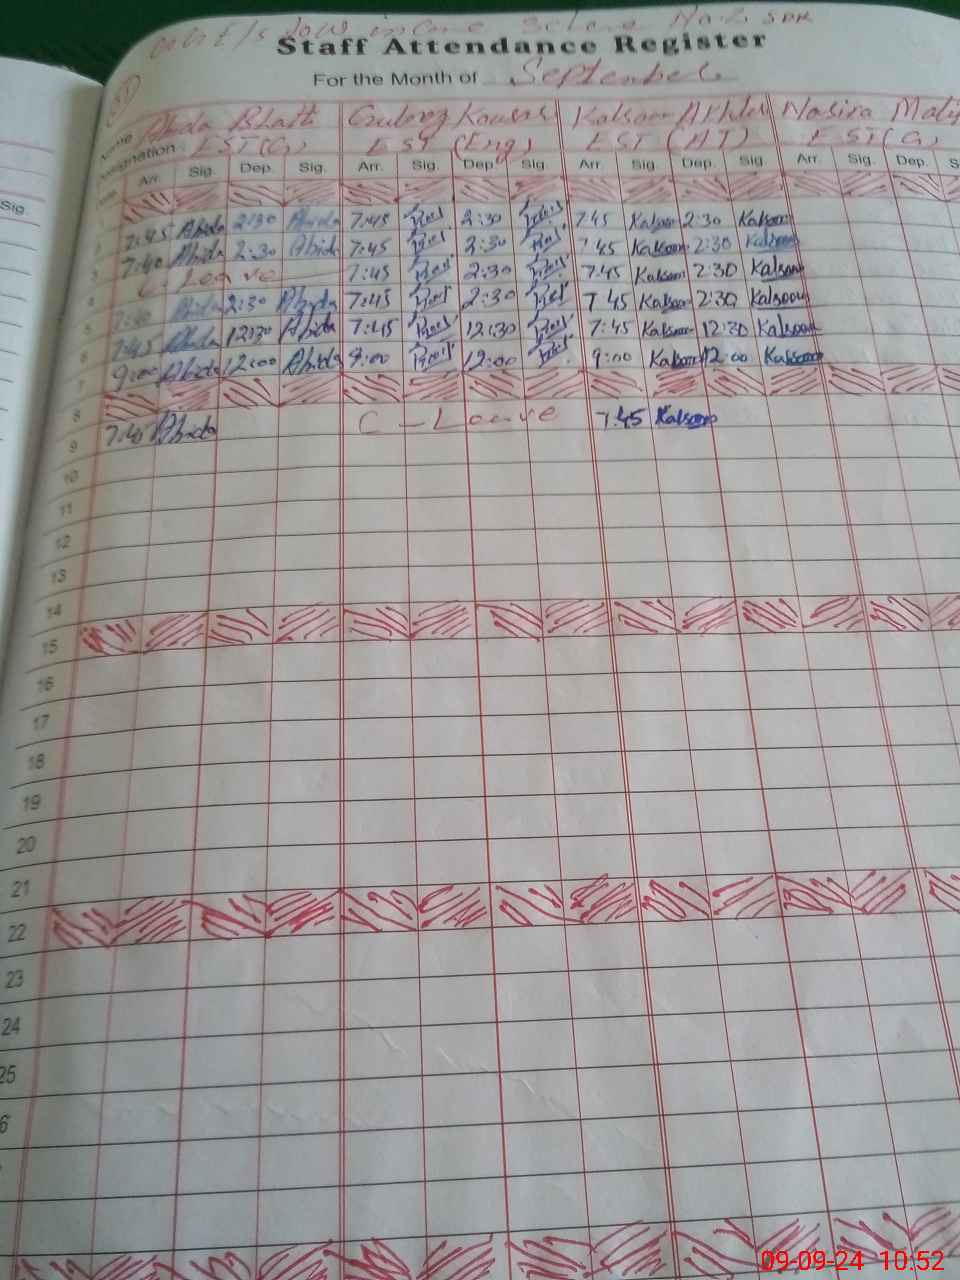 G.G. E/S low income Scheme No.2 SDK
Staff Attendance Register
For the Month of September
51
Name Abida Bhatti Gulnaz Kousar Kalsoom Akhter Nasira Mali
Designation EST(G) EST (Eng) EST (AT) EST(G)
Arr. Sig. Dep. Sig. Arr. Sig. Dep. Sig. Arr. Sig. Dep. Sig. Arr. Sig. Dep. S
Sig.
7:45 Abida 2:30 Abida 7:45 2:30 7:45 Kalsoom 2:30 Kalsoom
7:40 Abida 2:30 Abida 7:45 2:30 7:45 Kalsoom 2:30 Kalsoom
3 C-Leave 7:45 2:30 7:45 Kalsoom 2:30 Kalsoom
4 7:40 Abida 2:30 Abida 7:45 2:30 7:45 Kalsoom 2:30 Kalsoom
5 7:45 Abida 12:30 Abida 7:45 12:30 7:45 Kalsoom 12:30 Kalsoom
6 9:00 Abida 12:00 Abida 9:00 12:00 9:00 Kalsoom 12:00 Kalsoom
7
8
9 7:45 Abida C-Leave 7:45 Kalsoom
10
11
12
13
14
15
16
17
18
19
20
21
22
23
24
25
6
09-09-24 10:52